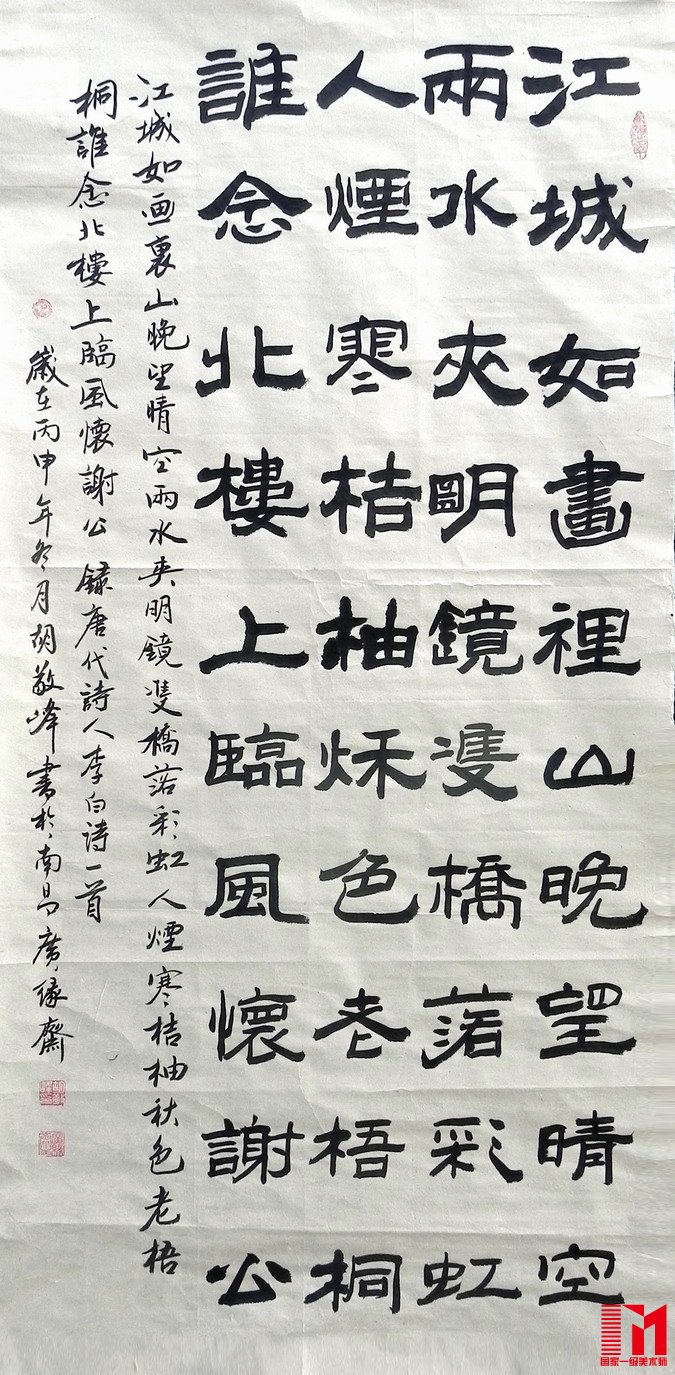 江城如畫裡山晚望晴空
兩水夾明鏡雙橋落彩虹
人煙寒桔柚秌色老梧桐
誰念北樓上臨風懷謝公
江城如画裏山晚望晴空兩水夹明鏡雙橋落彩虹人煙寒桔柚秋色老梧
桐誰念北樓上臨風懷謝公 録唐代詩人李白诗一首
歲在丙申年冬月胡敬峰書於南昌廣缘齋
国家一级美术师